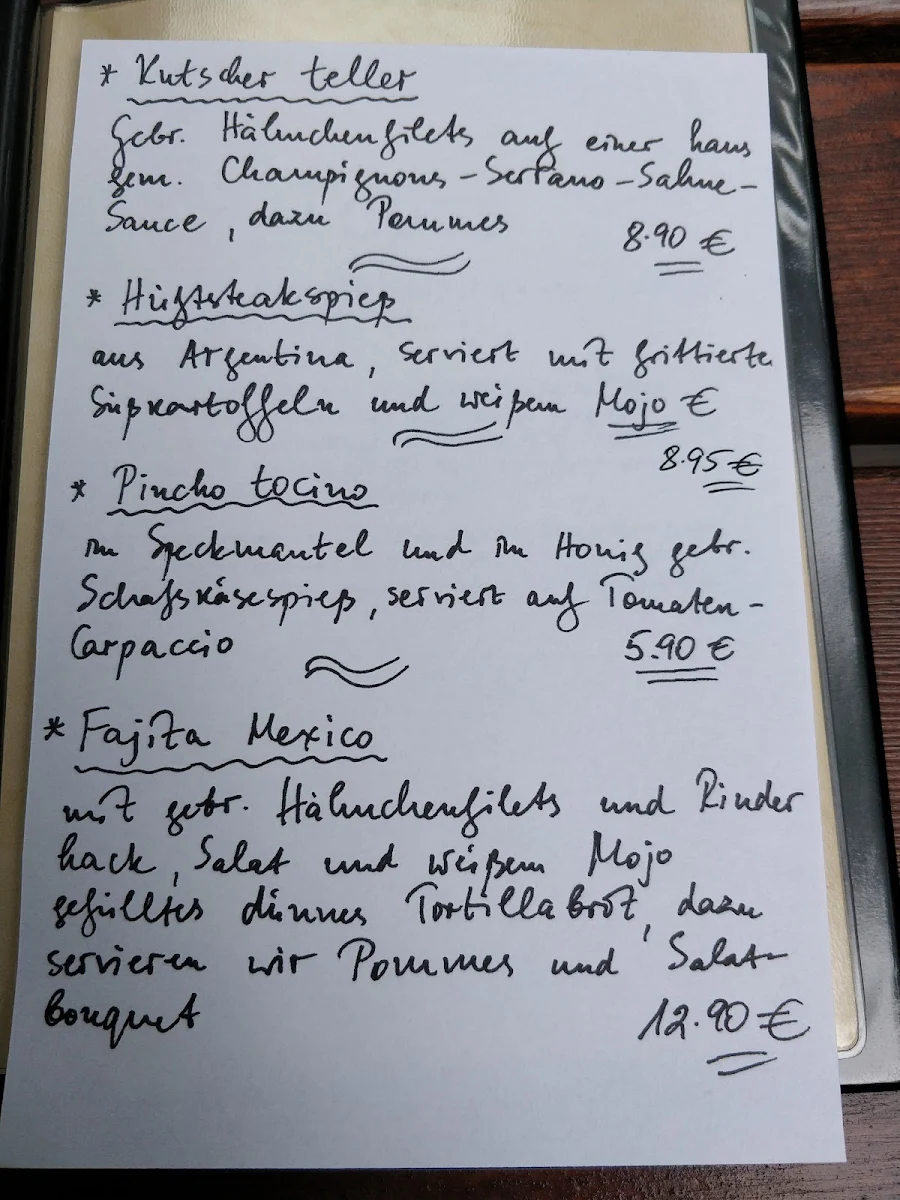 * Kutscher teller
Gebr. Hähnchenfilets auf einer haus
gem. Champignons-Serrano-Sahne-
Sauce, dazu Pommes
8.90 €
* Hüftsteakspieß
aus Argentina, serviert mit frittierte
Süßkartoffeln und weißem Mojo €
8.95 €
* Pincho tocino
im Speckmantel und im Honig gebr.
Schafskäsespieß, serviert auf Tomaten-
Carpaccio 5.90 €
* Fajita Mexico
mit gebr. Hähnchenfilets und Rinder
hack, Salat und weißem Mojo
gefülltes dünnes Tortillabrot, dazu
servieren wir Pommes und Salat-
bouquet 12.90 €